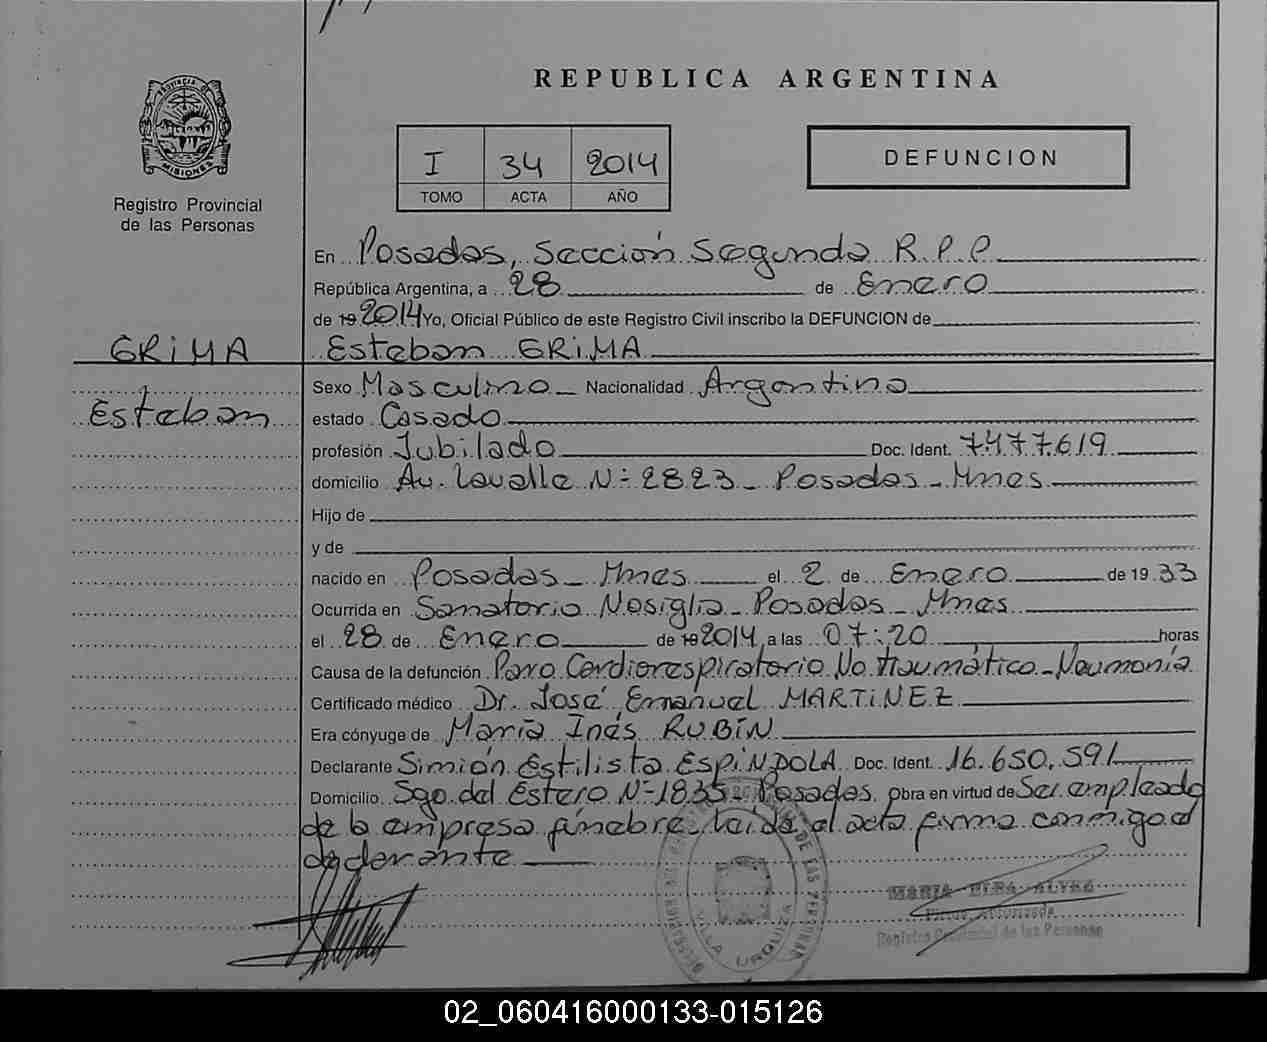 REPUBLICA ARGENTINA
PROVINCIA DE
MISIONES
Registro Provincial
de las Personas
I 34 2014
TOMO ACTA AÑO
DEFUNCION
En Posadas, Sección Segunda R.P.P.
República Argentina, a 28 de Enero
de 19 2014 Yo, Oficial Público de este Registro Civil inscribo la DEFUNCION de
GRiMA
Esteban GRiMA
Sexo Masculino Nacionalidad Argentina
Esteban
estado Casado
profesión Jubilado Doc. Ident. 7.477.619
domicilio Av. Lavalle N- 2823 - Posadas - Mnes
Hijo de
y de
nacido en Posadas - Mnes el 2 de Enero de 1933
Ocurrida en Sanatorio Nosiglia - Posadas - Mnes
el 28 de Enero de 19 2014 a las 07:20 horas
Causa de la defunción Paro Cardiorespiratorio No traumático - Neumonía
Certificado médico Dr. José Emanuel MARTiNEZ
Era cónyuge de María Inés RUBÍN
Declarante Simión Estilista ESPíNDOLA Doc. Ident. 16.650.591
Domicilio Sgo. del Estero N- 1835 - Posadas. Obra en virtud de Ser empleado
de la empresa fúnebre. Leída el acta firma conmigo el
declarante
MARIA ELBA ALVEZ
Firma Autorizada
Registro Provincial de las Personas
DE LAS PERSONAS
VILLA URQUIZA
02_060416000133-015126